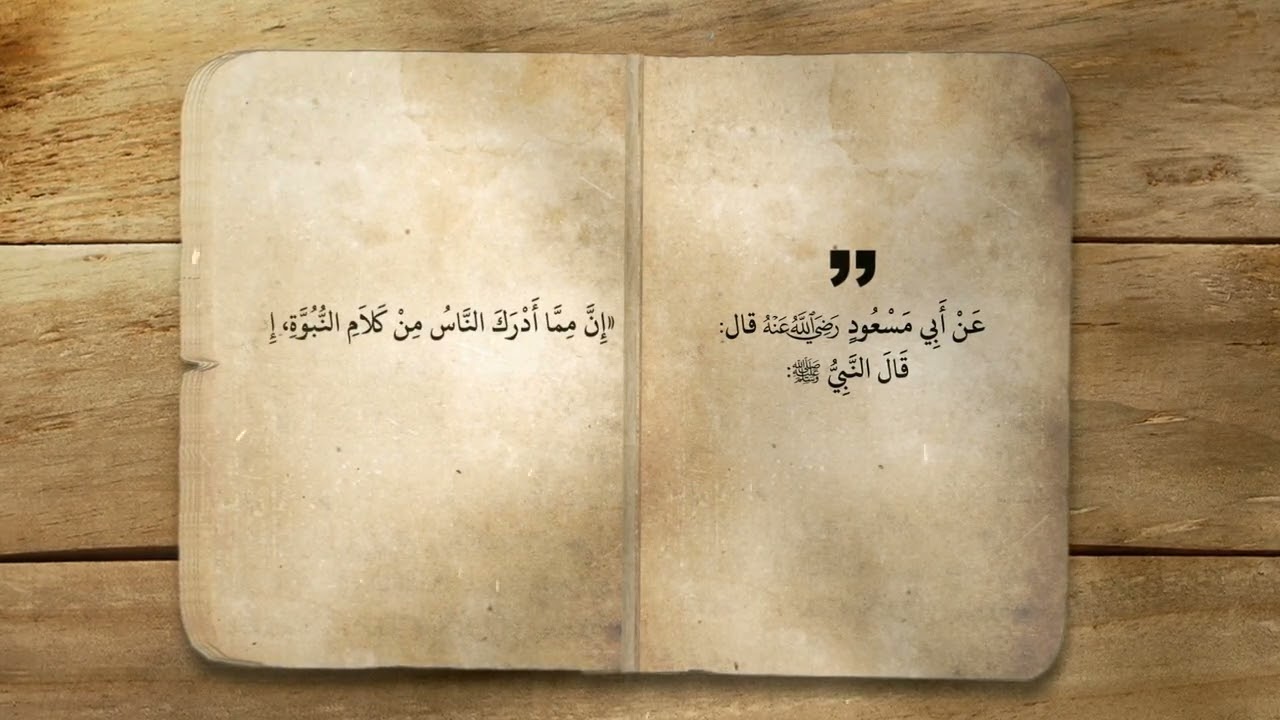 عَنْ أَبِي مَسْعُودٍ رَضِيَ اللَّهُ عَنْهُ قال:
قَالَ النَّبِيُّ ﷺ:
«إِنَّ مِمَّا أَدْرَكَ النَّاسُ مِنْ كَلاَمِ النُّبُوَّةِ، إِ